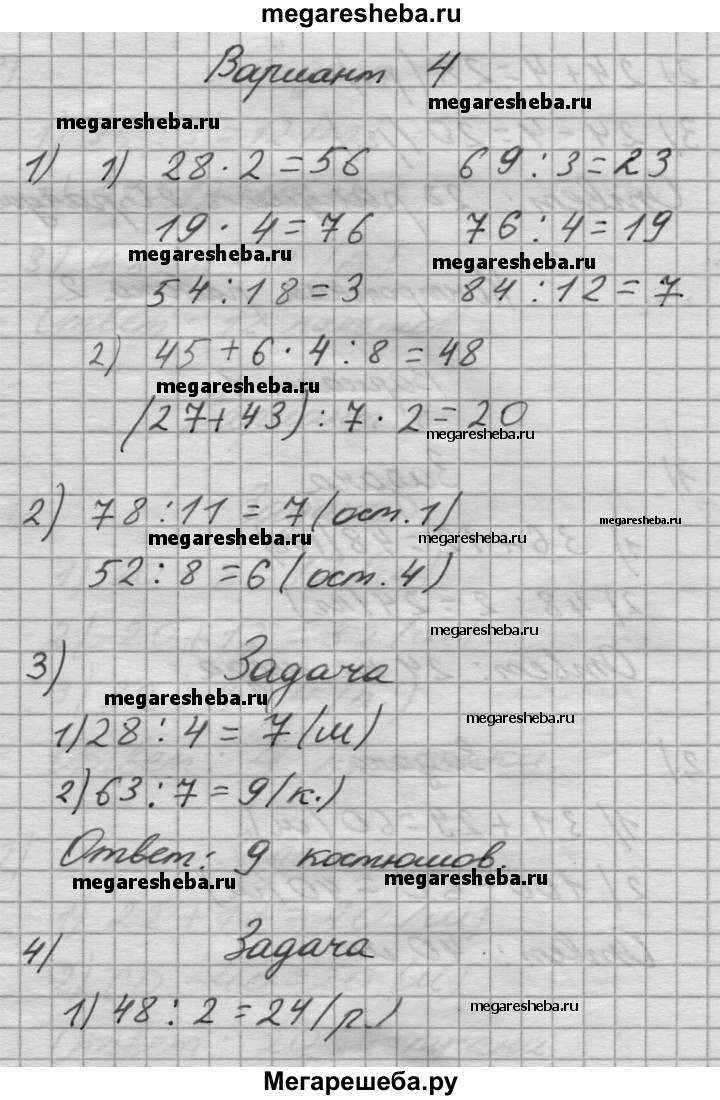 megaresheba.ru
Вариант 4
megaresheba.ru
megaresheba.ru
1) 1) 28 · 2 = 56 69 : 3 = 23
19 · 4 = 76 76 : 4 = 19
megaresheba.ru megaresheba.ru
54 : 18 = 3 84 : 12 = 7
2) 45 + 6 · 4 : 8 = 48
megaresheba.ru
(27 + 43) : 7 · 2 = 20
megaresheba.ru
2) 78 : 11 = 7 (ост. 1)
megaresheba.ru
megaresheba.ru megaresheba.ru
52 : 8 = 6 (ост. 4)
megaresheba.ru
3) Задача
megaresheba.ru
megaresheba.ru
1) 28 : 4 = 7 (м)
2) 63 : 7 = 9 (к.)
Ответ: 9 костюмов.
megaresheba.ru megaresheba.ru
4) Задача
1) 48 : 2 = 24 (р.)
megaresheba.ru
Мегарешеба.ру